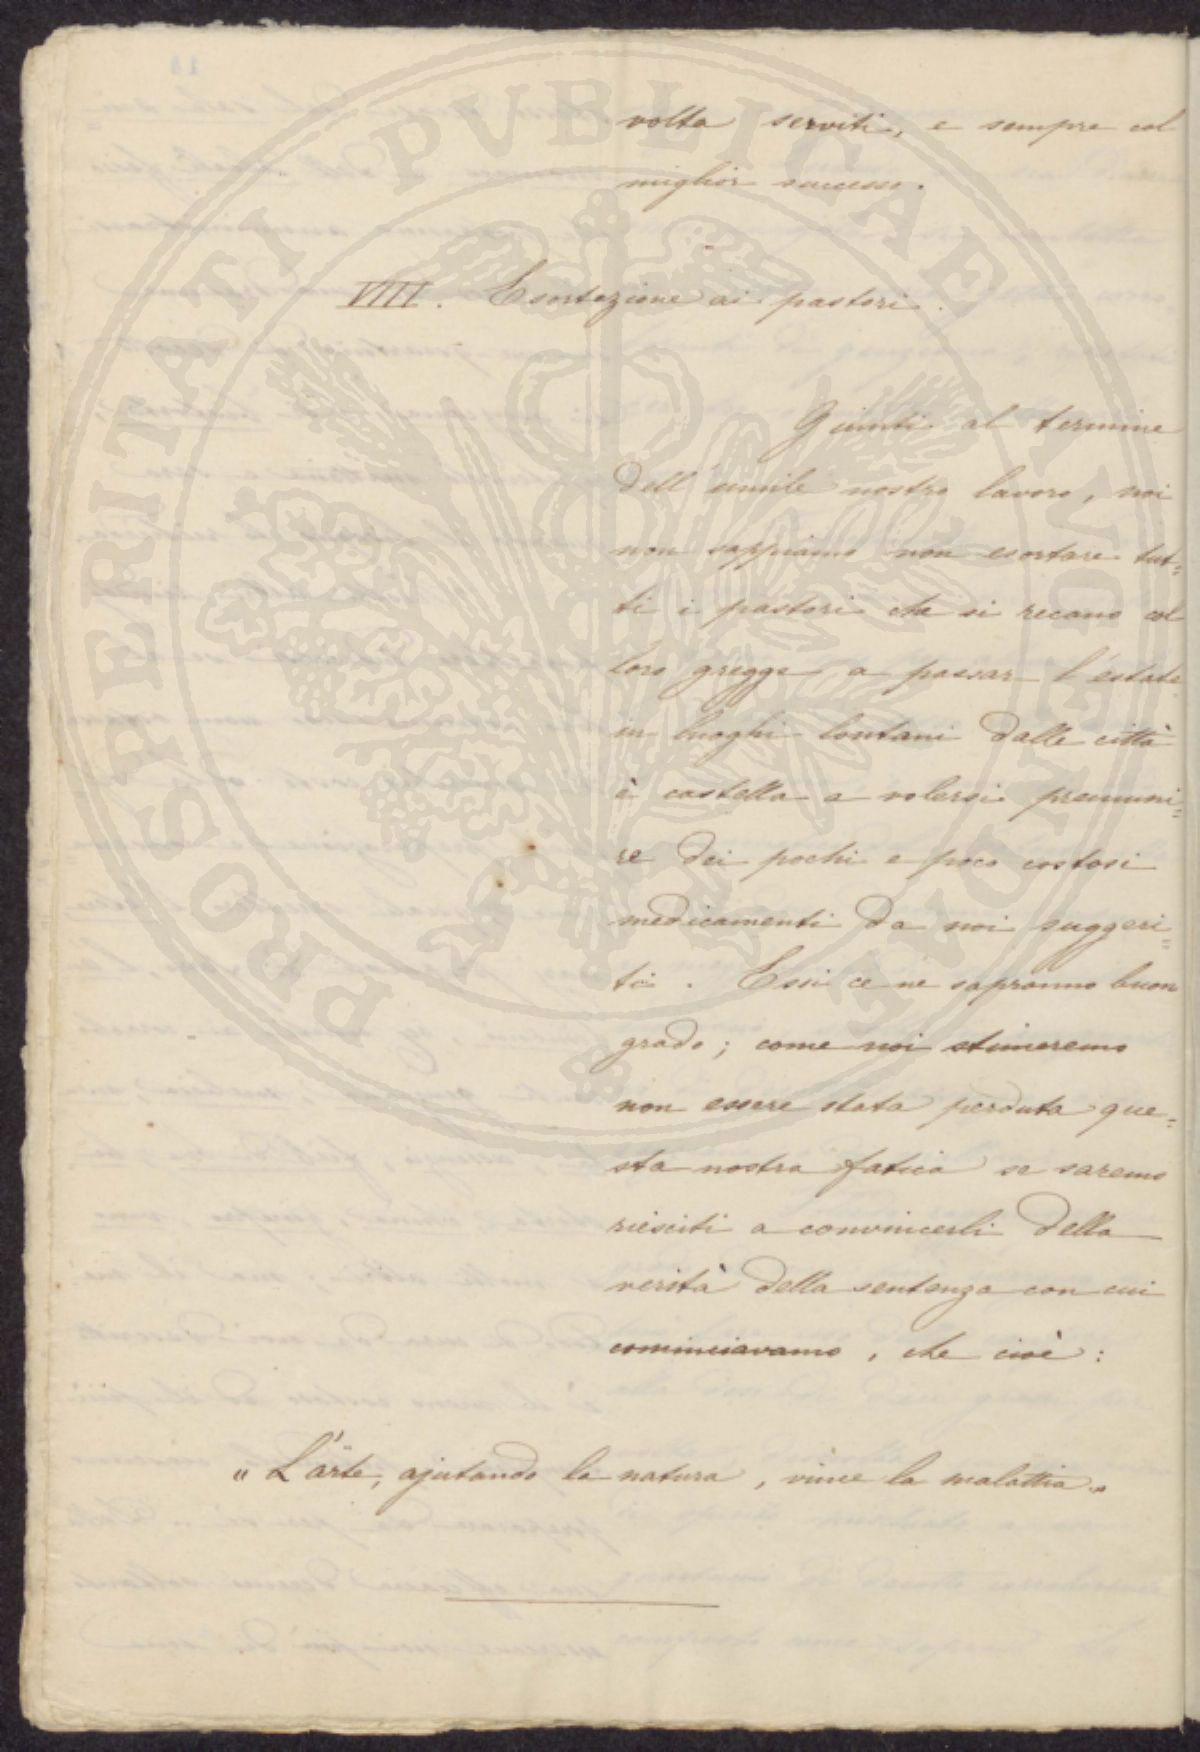 volta serviti, e sempre col
miglior successo.
VIIII. Esortazione ai pastori.
Giunti al termine
dell'umile nostro lavoro, noi
non sappiamo non esortare tut=
ti i pastori che si recano col
loro gregge a passar l'estate
in luoghi lontani dalle città
è castella a volersi premuni=
re dei pochi e poco costosi
medicamenti da noi suggeri=
ti. Essi ce ne sapranno buon
grado; come noi stimeremo
non essere stata perduta que=
sta nostra fatica se saremo
riesciti a convincerli della
verità della sentenza con cui
cominciavamo, che cioè:
" L'arte, ajutando la natura, vince la malattia "
PROSPERITATI PVBLICAE